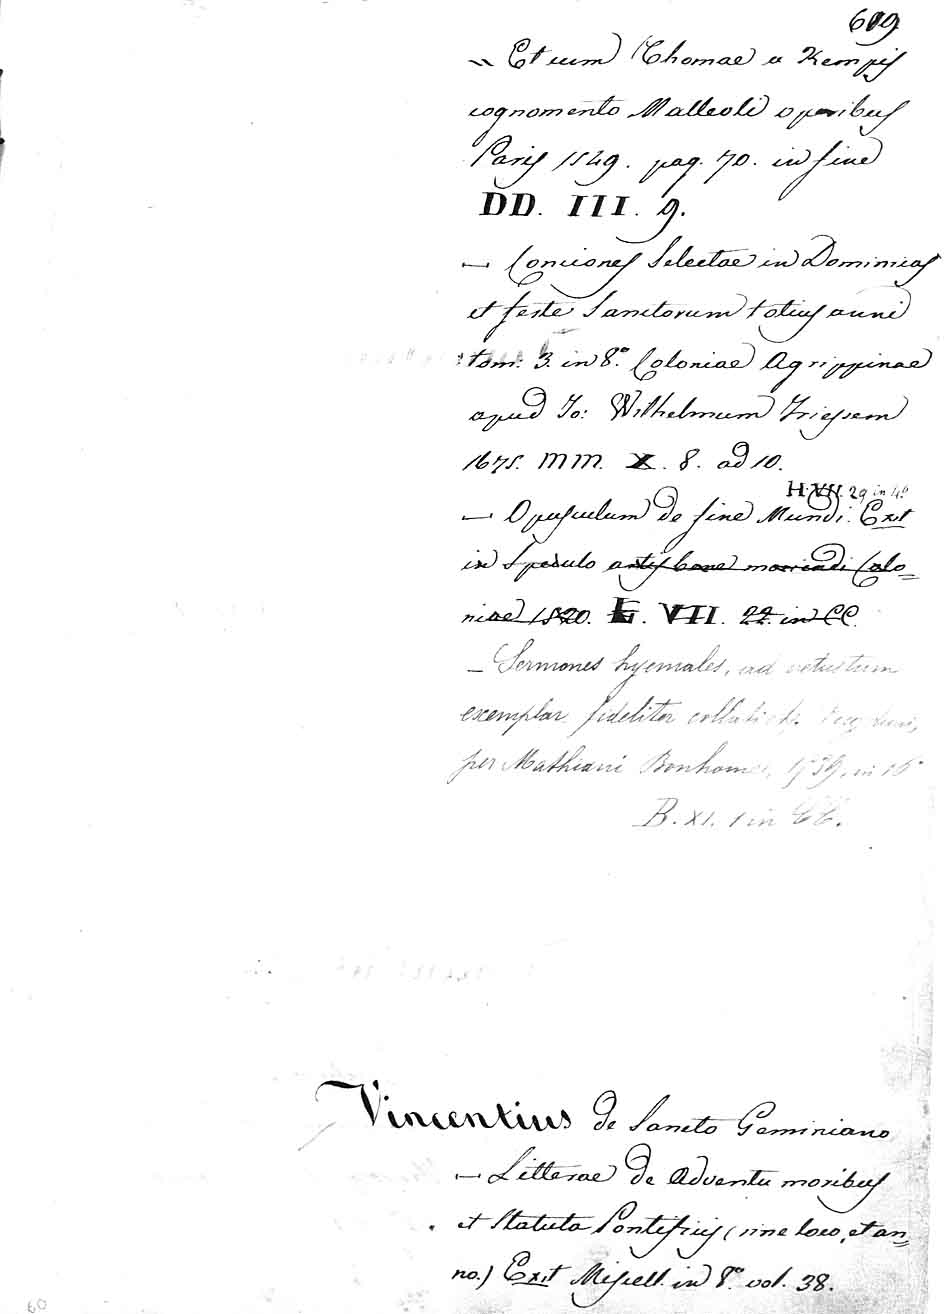 619
" Et cum Thomae a Kempis
cognomento Malleoli operibus
Paris 1549. pag. 70. in fine
DD. III. 9.
— Conciones Selectae in Dominicas
et festa Sanctorum totius anni
tom: 3. in 8.° Coloniae Agrippinae
apud Jo: Wilhelmum Friessem
1675. MM. X. 8. ad 10.
H. VII. 29 in 4°
— Opusculum de fine Mundi. Exit
in Speculo artis bene moriendi Colo=
niae 1520. L. VII. 22. in CC.
— Sermones hyemales, ad vetustum
exemplar fideliter collati
per Mathiam Bonhome, 1539, in 16°
B. XI. 1 in CC.
Vincentius de Sancto Geminiano
— Litterae de Adventu moribus
et Statuta Pontificis (sine loco, et an=
no.) Exit Miscell. in 8.° vol. 38.
60